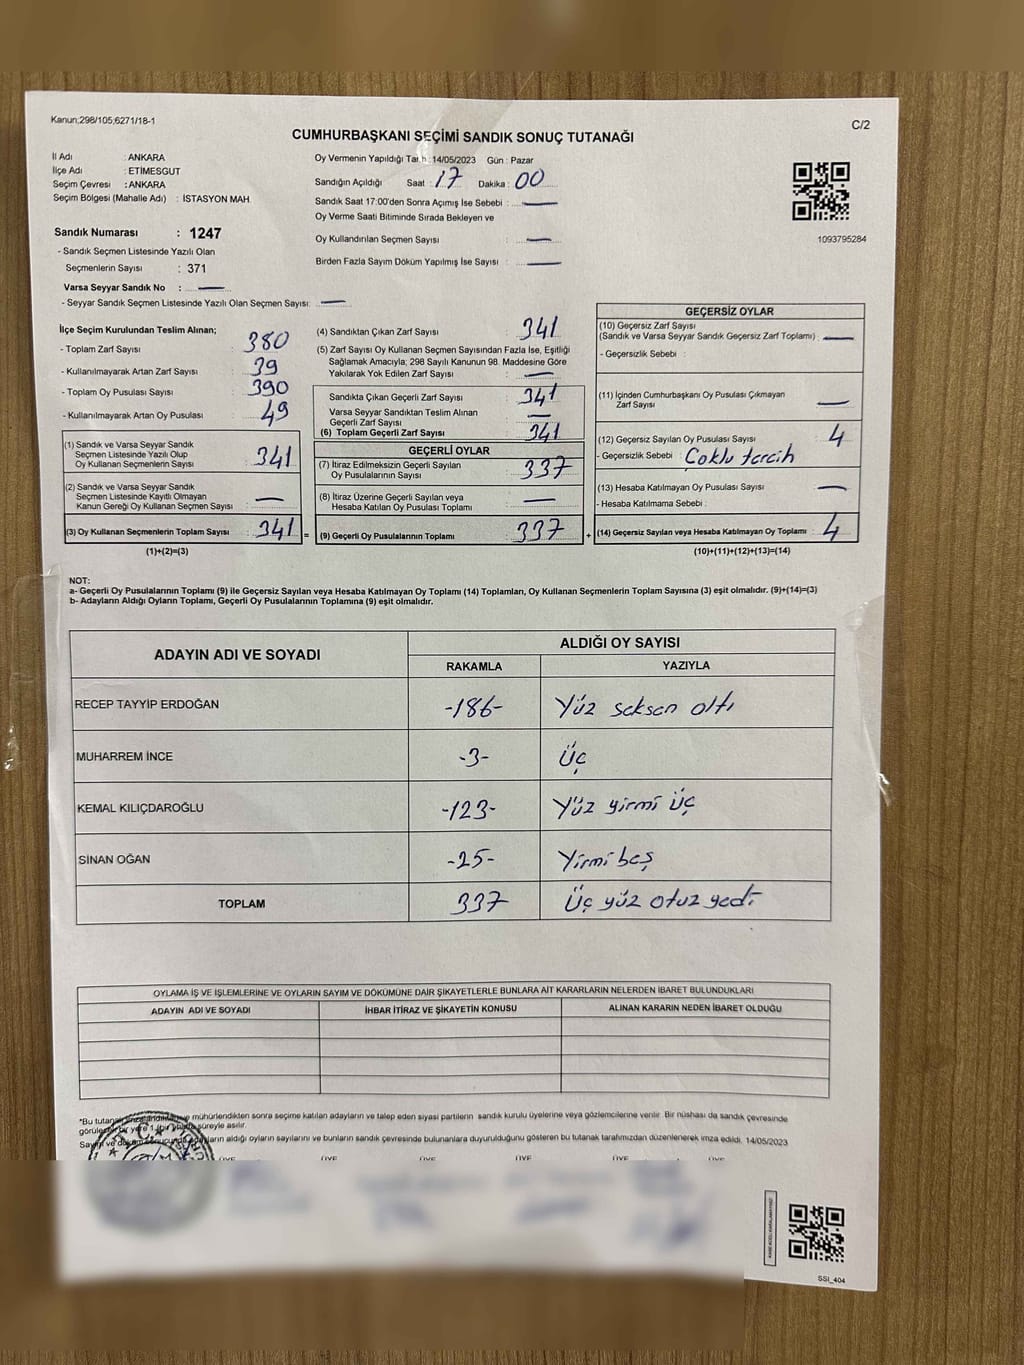 Kanun;298/105,6271/18-1
C/2
CUMHURBAŞKANI SEÇİMİ SANDIK SONUÇ TUTANAĞI
İl Adı : ANKARA
İlçe Adı : ETİMESGUT
Seçim Çevresi : ANKARA
Seçim Bölgesi (Mahalle Adı) : İSTASYON MAH
Sandık Numarası : 1247
- Sandık Seçmen Listesinde Yazılı Olan
Seçmenlerin Sayısı : 371
Varsa Seyyar Sandık No : —
- Seyyar Sandık Seçmen Listesinde Yazılı Olan Seçmen Sayısı: —
Oy Vermenin Yapıldığı Tarih : 14/05/2023 Gün : Pazar
Sandığın Açıldığı Saat : 17 Dakika : 00
Sandık Saat 17:00'den Sonra Açımış İse Sebebi : —
Oy Verme Saati Bitiminde Sırada Bekleyen ve
Oy Kullandırılan Seçmen Sayısı : —
Birden Fazla Sayım Döküm Yapılmış İse Sayısı : —
1093795284
İlçe Seçim Kurulundan Teslim Alınan;
- Toplam Zarf Sayısı : 380
- Kullanılmayarak Artan Zarf Sayısı : 39
- Toplam Oy Pusulası Sayısı : 390
- Kullanılmayarak Artan Oy Pusulası : 49
(1) Sandık ve Varsa Seyyar Sandık
Seçmen Listesinde Yazılı Olup
Oy Kullanan Seçmenlerin Sayısı : 341
(2) Sandık ve Varsa Seyyar Sandık
Seçmen Listesinde Kayıtlı Olmayan
Kanun Gereği Oy Kullanan Seçmen Sayısı : —
(3) Oy Kullanan Seçmenlerin Toplam Sayısı : 341 =
(1)+(2)=(3)
(4) Sandıktan Çıkan Zarf Sayısı : 341
(5) Zarf Sayısı Oy Kullanan Seçmen Sayısından Fazla İse, Eşitliği
Sağlamak Amacıyla; 298 Sayılı Kanunun 98. Maddesine Göre
Yakılarak Yok Edilen Zarf Sayısı : —
Sandıkta Çıkan Geçerli Zarf Sayısı : 341
Varsa Seyyar Sandıktan Teslim Alınan
Geçerli Zarf Sayısı : —
(6) Toplam Geçerli Zarf Sayısı : 341
GEÇERLİ OYLAR
(7) İtiraz Edilmeksizin Geçerli Sayılan
Oy Pusulalarının Sayısı : 337
(8) İtiraz Üzerine Geçerli Sayılan veya
Hesaba Katılan Oy Pusulası Toplamı : —
(9) Geçerli Oy Pusulalarının Toplamı : 337 +
GEÇERSİZ OYLAR
(10) Geçersiz Zarf Sayısı
(Sandık ve Varsa Seyyar Sandık Geçersiz Zarf Toplamı) : —
- Geçersizlik Sebebi :
(11) İçinden Cumhurbaşkanı Oy Pusulası Çıkmayan
Zarf Sayısı : —
(12) Geçersiz Sayılan Oy Pusulası Sayısı : 4
- Geçersizlik Sebebi : Çoklu tercih
(13) Hesaba Katılmayan Oy Pusulası Sayısı : —
- Hesaba Katılmama Sebebi :
(14) Geçersiz Sayılan veya Hesaba Katılmayan Oy Toplamı : 4
(10)+(11)+(12)+(13)=(14)
NOT:
a- Geçerli Oy Pusulalarının Toplamı (9) ile Geçersiz Sayılan veya Hesaba Katılmayan Oy Toplamı (14) Toplamları, Oy Kullanan Seçmenlerin Toplam Sayısına (3) eşit olmalıdır. (9)+(14)=(3)
b- Adayların Aldığı Oyların Toplamı, Geçerli Oy Pusulalarının Toplamına (9) eşit olmalıdır.
ADAYIN ADI VE SOYADI ALDIĞI OY SAYISI
RAKAMLA YAZIYLA
RECEP TAYYİP ERDOĞAN -186- Yüz seksen altı
MUHARREM İNCE -3- Üç
KEMAL KILIÇDAROĞLU -123- Yüz yirmi üç
SİNAN OĞAN -25- Yirmi beş
TOPLAM 337 Üç yüz otuz yedi
OYLAMA İŞ VE İŞLEMLERİNE VE OYLARIN SAYIM VE DÖKÜMÜNE DAİR ŞİKAYETLERLE BUNLARA AİT KARARLARIN NELERDEN İBARET BULUNDUKLARI
ADAYIN ADI VE SOYADI İHBAR İTİRAZ VE ŞİKAYETİN KONUSU ALINAN KARARIN NEDEN İBARET OLDUĞU
*Bu tutanak mühürlendikten sonra seçime katılan adayların ve talep eden siyasi partilerin sandık kurulu üyelerine veya gözlemcilerine verilir. Bir nüshası da sandık çevresinde
bir yere süreyle asılır.
Sayım ve aldığı oyların sayılarını ve bunların sandık çevresinde bulunanlara duyurulduğunu gösteren bu tutanak tarafımızdan düzenlenerek imza edildi. 14/05/2023
ÜYE ÜYE ÜYE ÜYE ÜYE ÜYE
SSI_404